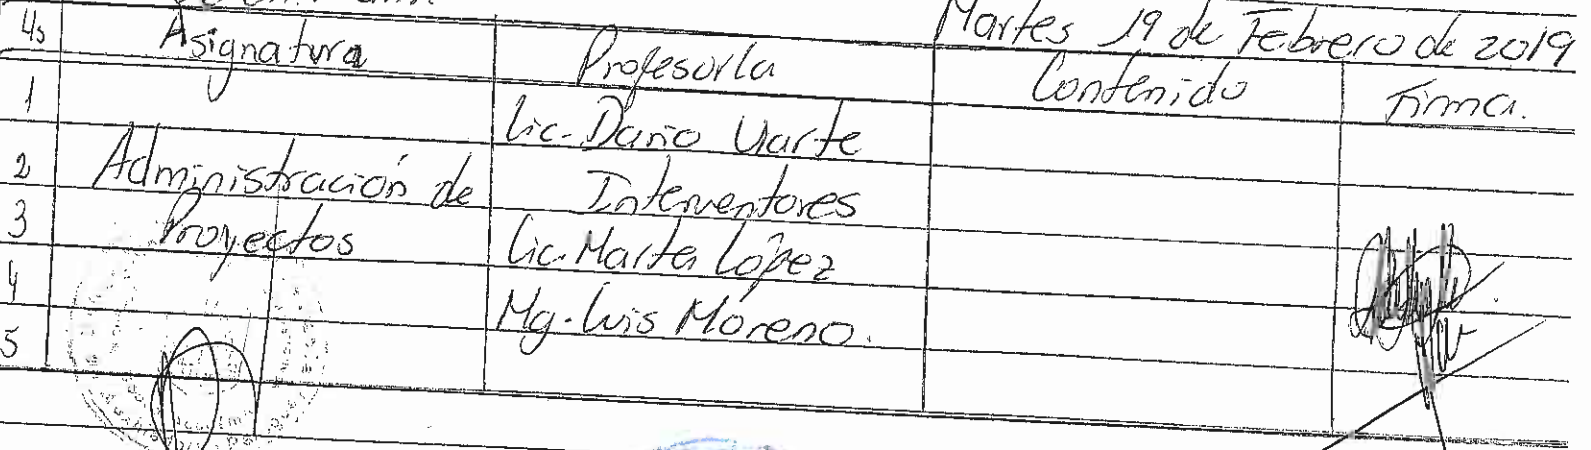 Martes 19 de Febrero de 2019
Hs Asignatura Profesor/a Contenido Firma.
1 Lic. Dario Uarte
2 Administración de Interventores
3 Proyectos Lic. Marta López
4 Mg. Luis Moreno.
5